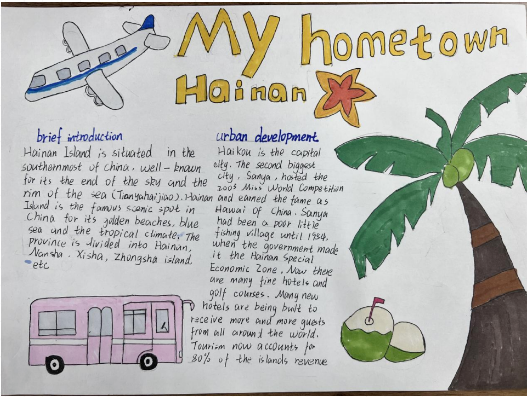 My hometown
Hainan
brief introduction
Hainan Island is situated in the
southernmost of China. well-known
for its the end of the sky and the
rim of the sea (Tianyahaijiao). Hainan
Island is the famous scenic spot in
China for its golden beaches, blue
sea and the tropical climate. The
province is divided into Hainan,
Nansha. Xisha, Zhongsha island.
etc
urban development
Haikou is the capital
city. The second biggest
city. Sanya, hosted the
2003 Miss World Competition
and earned the fame as
Hawaii of China. Sanya
had been a poor little
fishing village until 1984,
when the government made
it the Hainan Special
Economic Zone. Now there
are many fine hotels and
golf courses. Many new
hotels are being built to
receive more and more guests
from all around the world.
Tourism now accounts for
80% of the islands revenue